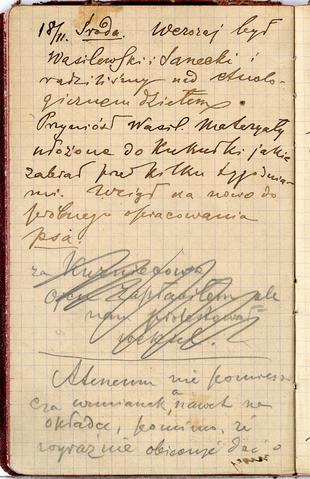 18/II. Środa. Wczoraj był
Wasilewski i Janecki i
radziliśmy nad etnolo-
gicznem dziełem.
Przyniósł Wasil. materyały
ułożone do Kukułki jakie
zabrał przed kilku tygodnia-
mi. Wziął na nowo do
próbnego opracowania
psa.
za
zapłaciłem ale
weksel.
Ateneum nie pomiesz-
cza wzmianek, a nawet na
okładce, pomimo, iż
wyraźnie obiecuje dać